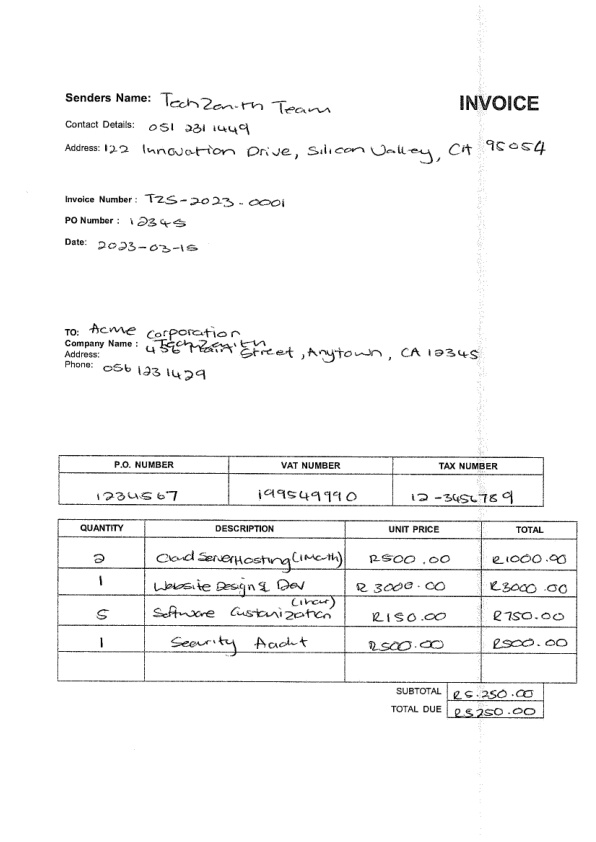 Senders Name: TechZenith Team
INVOICE
Contact Details: 051 231 1449
Address: 122 Innovation Drive, Silicon Valley, CA 95054
Invoice Number : TZS-2023-0001
PO Number : 12345
Date: 2023-03-15
TO: Acme Corporation
Company Name : TechZenith
Address: 456 Main Street, Anytown, CA 12345
Phone: 056 123 1429
P.O. NUMBER VAT NUMBER TAX NUMBER
1234567 199549990 12-3456789
QUANTITY DESCRIPTION UNIT PRICE TOTAL
2 Cloud Server Hosting (1 Month) R500.00 R1000.00
1 Website Design & Dev R3000.00 R3000.00
5 Software Customization (1 hour) R150.00 R750.00
1 Security Audit R500.00 R500.00
SUBTOTAL R5.250.00
TOTAL DUE R5250.00